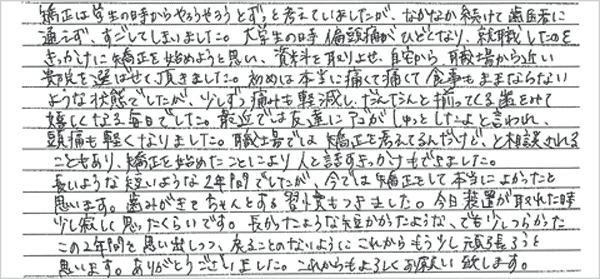 矯正は学生の時からやろうやろうとずっと考えていましたが、なかなか続けて歯医者に
通えず、すごしてしまいました。大学生の時偏頭痛がひどくなり、就職したのを
きっかけに矯正を始めようと思い、資料を取りよせ、自宅から、職場から近い
貴院を選ばせて頂きました。初めは本当に痛くて痛くて食事もままならない
ような状態でしたが、少しずつ痛みも軽減し、だんだんと揃ってくる歯をみて
嬉しくなる毎日でした。最近では友達にアゴがしゅっとしたよと言われ、
頭痛も軽くなりました。職場では矯正を考えてるんだけど、と相談される
こともあり、矯正を始めたことにより人と話すきっかけもできました。
長いような短いような2年間でしたが、今では矯正をして本当によかったと
思います。歯みがきをちゃんとする習慣もつきました。今日装置が取れた時
少し寂しく思ったくらいです。長かったような短かかったような、でも少しつらかった
この2年間を思い出しつつ、戻ることのないようにこれからもう少し頑張ろうと
思います。ありがとうございました。これからもよろしくお願い致します。